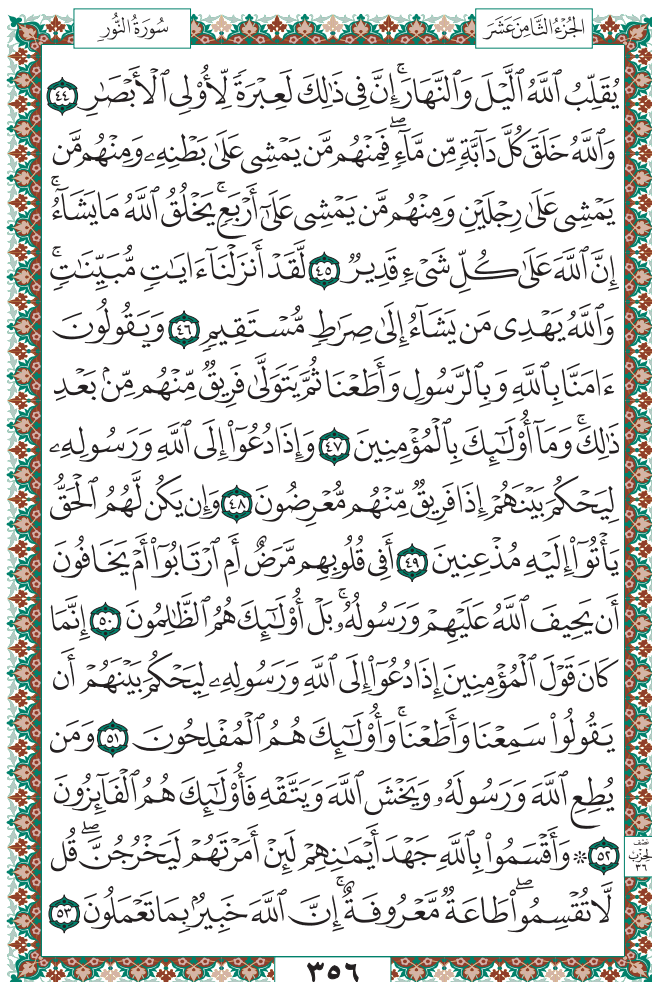 الجُزْءُ الثَّامِنَ عَشَرَ
سُورَةُ النُّور
يُقَلِّبُ ٱللَّهُ ٱلَّيۡلَ وَٱلنَّهَارَۚ إِنَّ فِي ذَٰلِكَ لَعِبۡرَةٗ لِّأُوْلِي ٱلۡأَبۡصَٰرِ ٤٤
وَٱللَّهُ خَلَقَ كُلَّ دَآبَّةٖ مِّن مَّآءٖۖ فَمِنۡهُم مَّن يَمۡشِي عَلَىٰ بَطۡنِهِۦ وَمِنۡهُم مَّن
يَمۡشِي عَلَىٰ رِجۡلَيۡنِ وَمِنۡهُم مَّن يَمۡشِي عَلَىٰٓ أَرۡبَعٖۚ يَخۡلُقُ ٱللَّهُ مَا يَشَآءُۚ
إِنَّ ٱللَّهَ عَلَىٰ كُلِّ شَيۡءٖ قَدِيرٞ ٤٥ لَّقَدۡ أَنزَلۡنَآ ءَايَٰتٖ مُّبَيِّنَٰتٖۚ
وَٱللَّهُ يَهۡدِي مَن يَشَآءُ إِلَىٰ صِرَٰطٖ مُّسۡتَقِيمٖ ٤٦ وَيَقُولُونَ
ءَامَنَّا بِٱللَّهِ وَبِٱلرَّسُولِ وَأَطَعۡنَا ثُمَّ يَتَوَلَّىٰ فَرِيقٞ مِّنۡهُم مِّنۢ بَعۡدِ
ذَٰلِكَۚ وَمَآ أُوْلَٰٓئِكَ بِٱلۡمُؤۡمِنِينَ ٤٧ وَإِذَا دُعُوٓاْ إِلَى ٱللَّهِ وَرَسُولِهِۦ
لِيَحۡكُمَ بَيۡنَهُمۡ إِذَا فَرِيقٞ مِّنۡهُم مُّعۡرِضُونَ ٤٨ وَإِن يَكُن لَّهُمُ ٱلۡحَقُّ
يَأۡتُوٓاْ إِلَيۡهِ مُذۡعِنِينَ ٤٩ أَفِي قُلُوبِهِم مَّرَضٌ أَمِ ٱرۡتَابُوٓاْ أَمۡ يَخَافُونَ
أَن يَحِيفَ ٱللَّهُ عَلَيۡهِمۡ وَرَسُولُهُۥۚ بَلۡ أُوْلَٰٓئِكَ هُمُ ٱلظَّٰلِمُونَ ٥٠ إِنَّمَا
كَانَ قَوۡلَ ٱلۡمُؤۡمِنِينَ إِذَا دُعُوٓاْ إِلَى ٱللَّهِ وَرَسُولِهِۦ لِيَحۡكُمَ بَيۡنَهُمۡ أَن
يَقُولُواْ سَمِعۡنَا وَأَطَعۡنَاۚ وَأُوْلَٰٓئِكَ هُمُ ٱلۡمُفۡلِحُونَ ٥١ وَمَن
يُطِعِ ٱللَّهَ وَرَسُولَهُۥ وَيَخۡشَ ٱللَّهَ وَيَتَّقۡهِ فَأُوْلَٰٓئِكَ هُمُ ٱلۡفَآئِزُونَ
٥٢ ۞ وَأَقۡسَمُواْ بِٱللَّهِ جَهۡدَ أَيۡمَٰنِهِمۡ لَئِنۡ أَمَرۡتَهُمۡ لَيَخۡرُجُنَّۖ قُل
لَّا تُقۡسِمُواْۖ طَاعَةٞ مَّعۡرُوفَةٌۚ إِنَّ ٱللَّهَ خَبِيرُۢ بِمَا تَعۡمَلُونَ ٥٣
نصف
الحزب
٣٦
٣٥٦